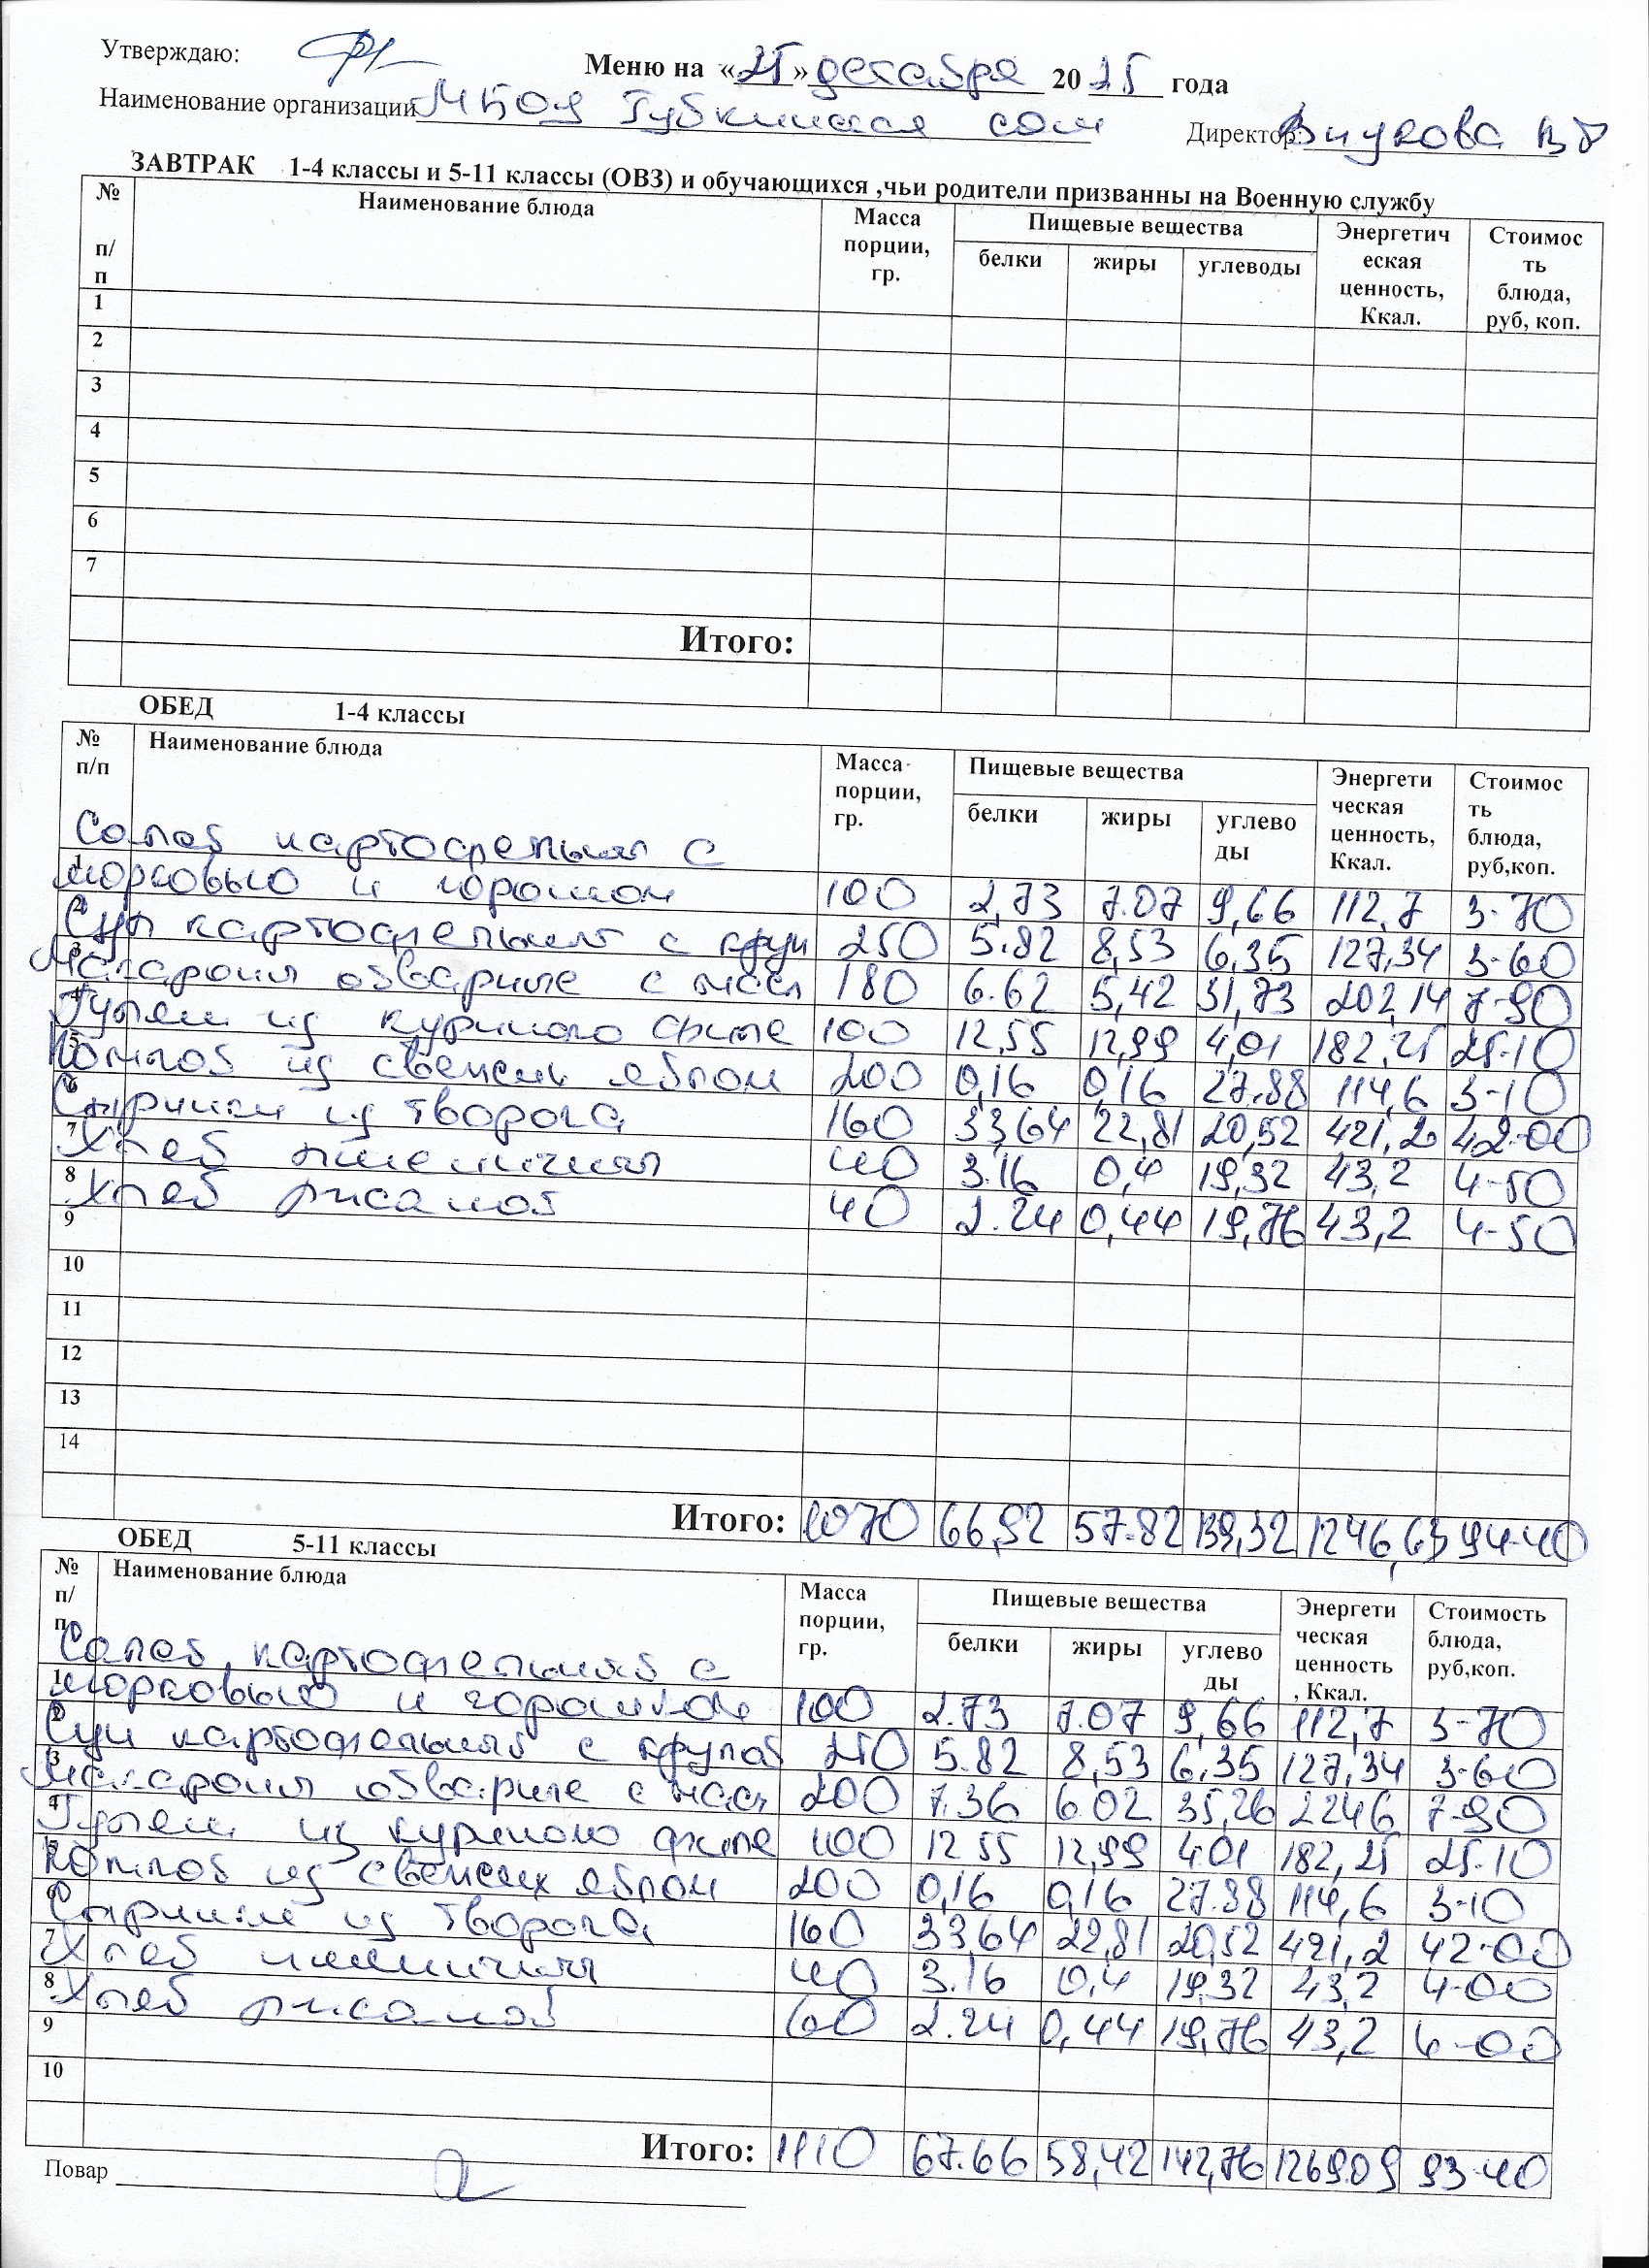 Утверждаю:
Меню на «25» декабря 2025 года
Наименование организации МБОУ Губкинская сош Директор: Внукова
ЗАВТРАК 1-4 классы и 5-11 классы (ОВЗ) и обучающихся ,чьи родители призванны на Военную службу
№ п/п Наименование блюда Масса порции, гр. Пищевые вещества Энергетическая ценность, Ккал. Стоимость блюда, руб, коп.
белки жиры углеводы
1
2
3
4
5
6
7
Итого:
ОБЕД 1-4 классы
№ п/п Наименование блюда Масса порции, гр. Пищевые вещества Энергетическая ценность, Ккал. Стоимость блюда, руб,коп.
белки жиры углеводы
Салат картофельный с
1 морковью и горошком 100 2,73 7.07 9,66 112,7 3-70
2 Суп картофельный с круп 250 5.82 8,53 6,35 127,34 3-60
3 Макароны отварные с масл 180 6.62 5,42 31,73 202,14 7-90
4 Гуляш из куриного филе 100 12,55 12,99 4,01 182,25 25-10
5 Компот из свежих яблок 200 0,16 0,16 27.88 114,6 3-10
6 Сырники из творога 160 33,64 22,81 20,52 421,2 42-00
7 Хлеб пшеничный 40 3.16 0,4 19,32 43,2 4-50
8 Хлеб ржаной 40 2.24 0,44 19,76 43,2 4-50
9
10
11
12
13
14
Итого: 1070 66,92 57.82 139,32 1246,63 94-40
ОБЕД 5-11 классы
№ п/п Наименование блюда Масса порции, гр. Пищевые вещества Энергетическая ценность, Ккал. Стоимость блюда, руб,коп.
белки жиры углеводы
Салат картофельный с
1 морковью и горошком 100 2.73 7.07 9,66 112,7 3-70
2 Суп картофельный с крупой 250 5.82 8,53 6,35 127,34 3-60
3 Макароны отварные с масл 200 7.36 6.02 35,26 224 6 7-90
4 Гуляш из куриного филе 100 12 55 12,99 4.01 182,25 25-10
5 Компот из свежих яблок 200 0,16 0,16 27.88 114,6 3-10
6 Сырники из творога 160 33,64 22,81 20,52 421,2 42-00
7 Хлеб пшеничный 40 3.16 0,4 19,32 43,2 4-00
8 Хлеб ржаной 60 2.24 0,44 19,76 43,2 4-00
9
10
Итого: 1110 67.66 58,42 142,76 1269.09 93-40
Повар